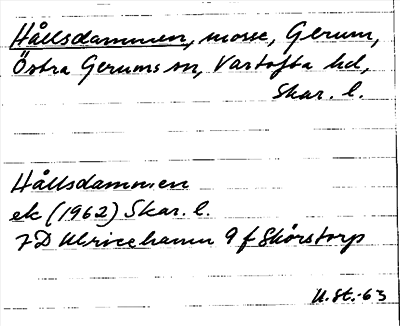 Hållsdammen, mosse, Gerum,
Östra Gerums sn, Vartofta hd,
Skar. l.
Hållsdammen
ek (1962) Skar. l.
7D Ulricehamn 9 f Skörstorp
U. St. -63